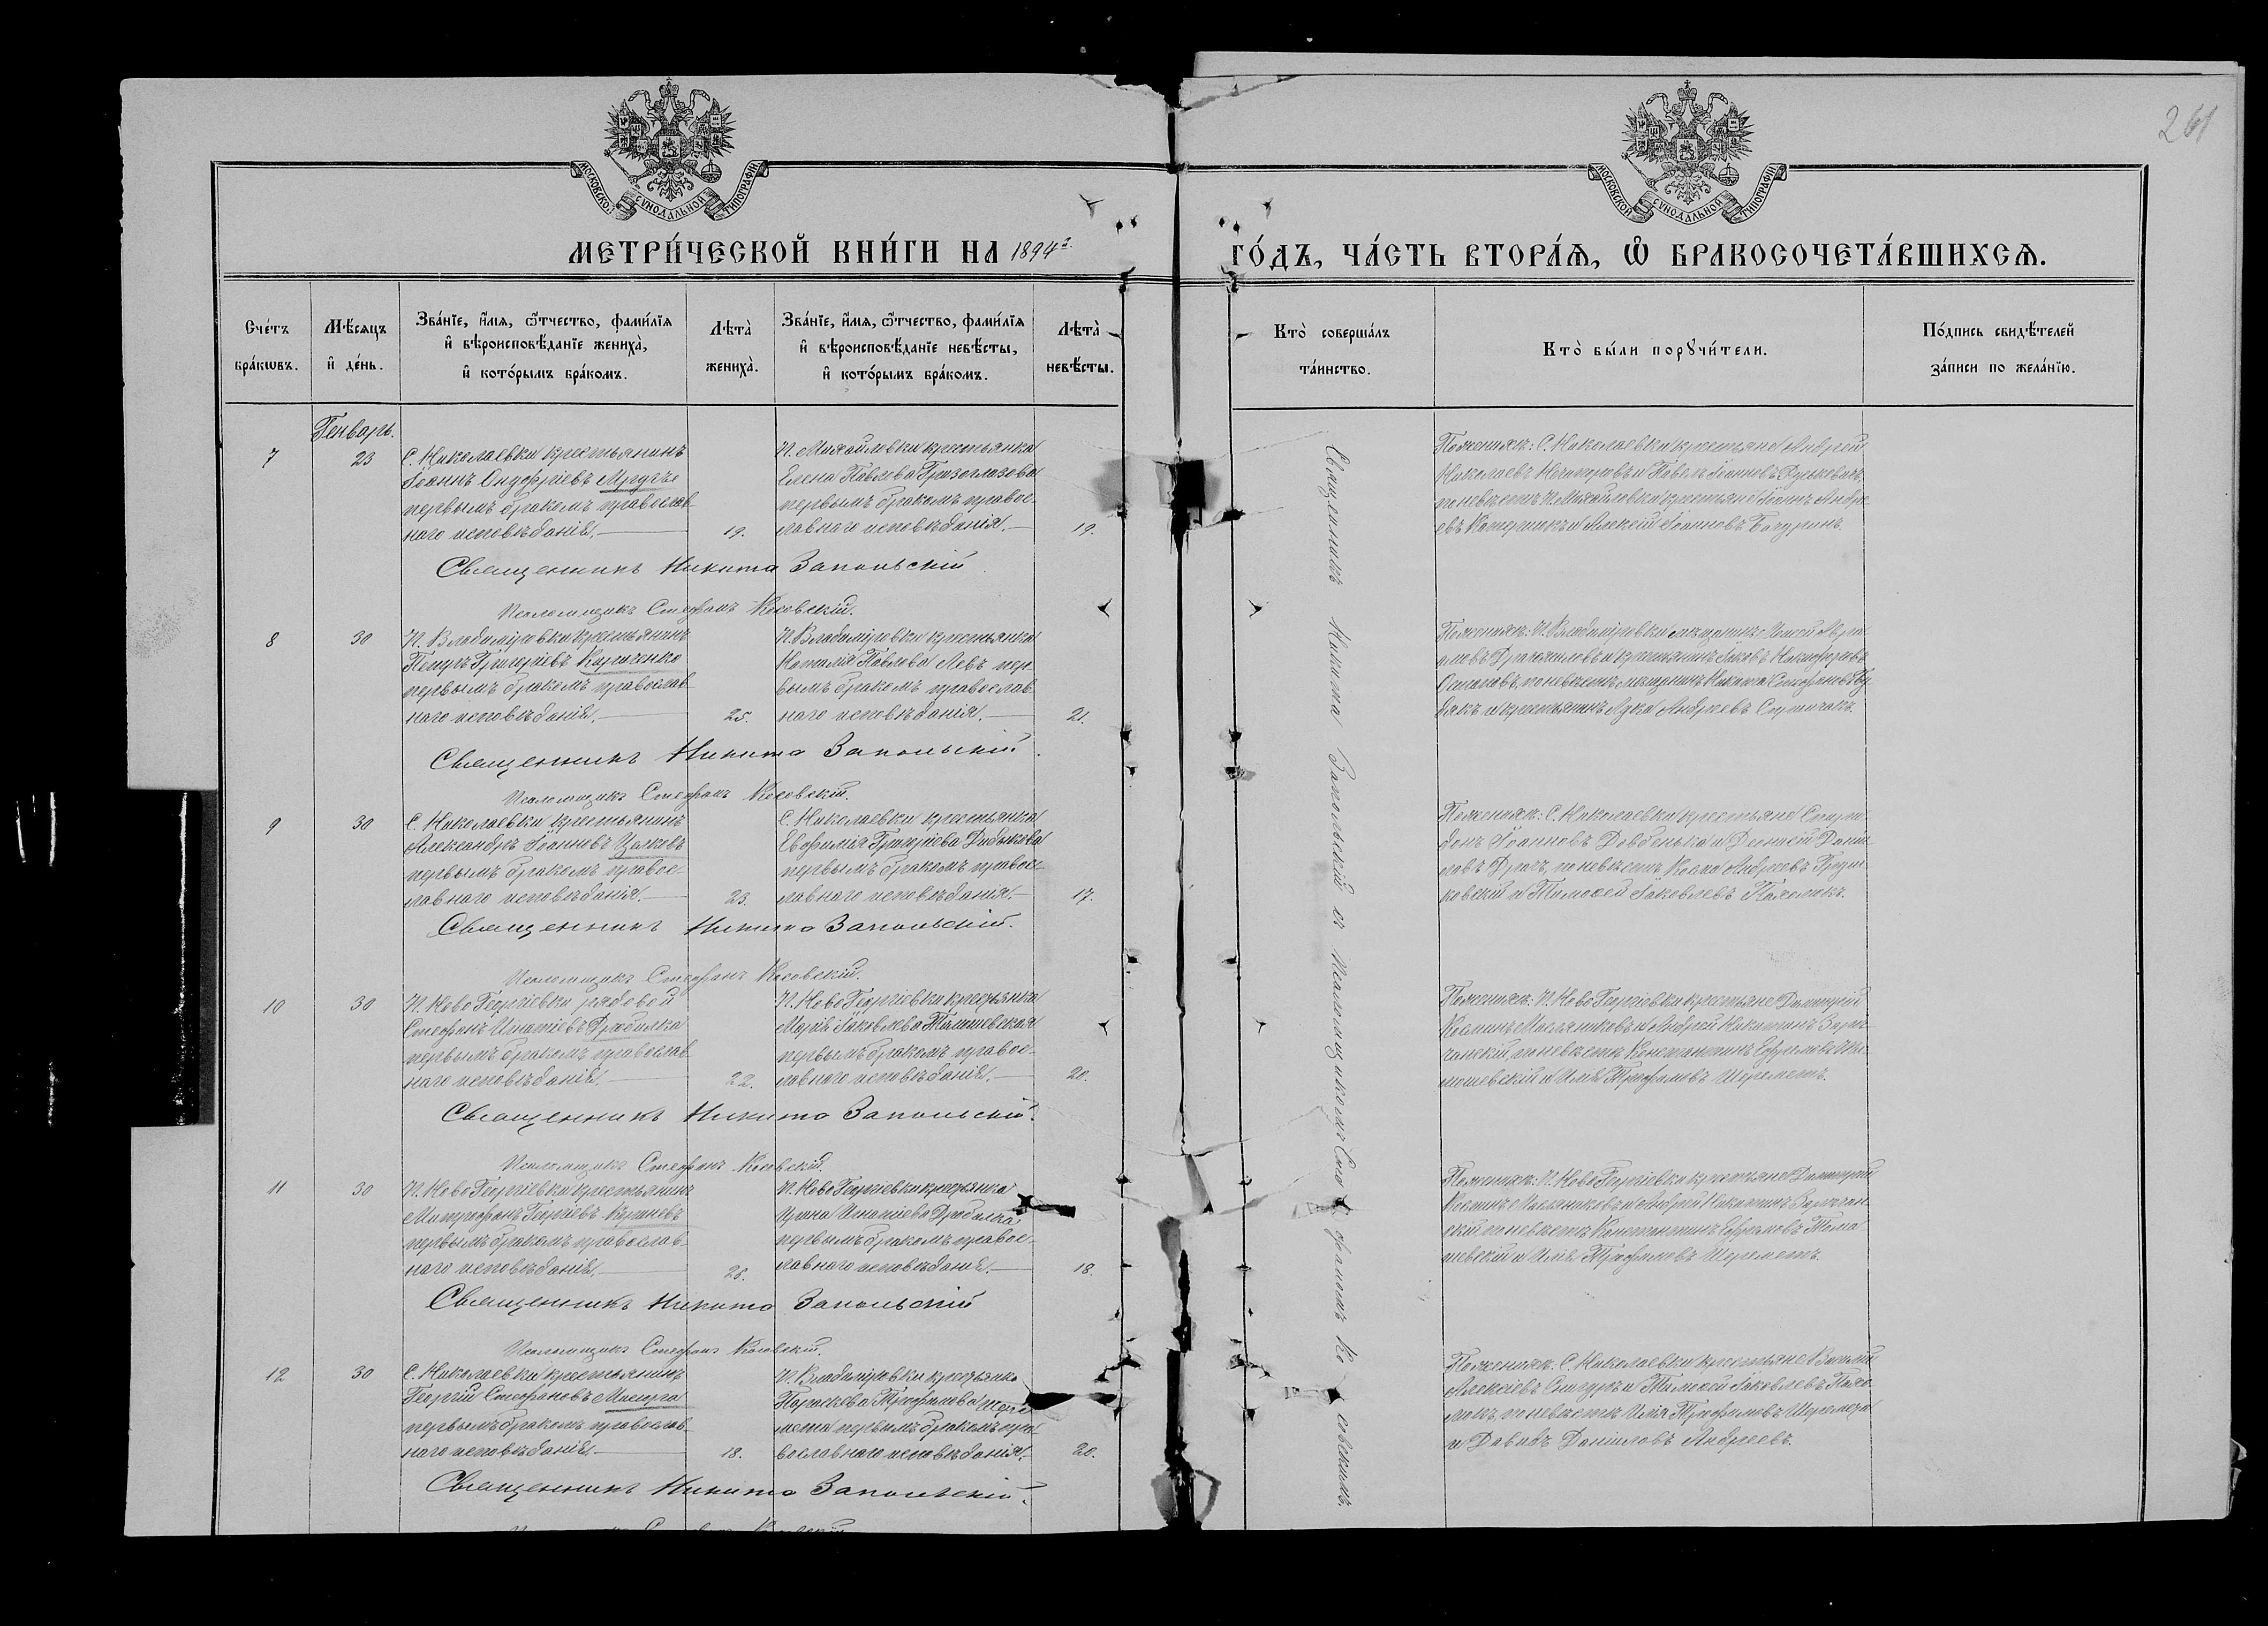 261
МОСКОВСКОЙ СУНОДАЛЬНОЙ ТИПОГРАФІИ
МОСКОВСКОЙ СУНОДАЛЬНОЙ ТИПОГРАФІИ
МЕТРИ́ЧЕСКОЙ КНИ́ГИ НА 1894 г. ГО́ДЪ, ЧА́СТЬ ВТОРА́Ѧ, Ѽ БРАКОСОЧЕТА́ВШИХСѦ.
Сче́тъ бра́кѡвъ.
Мѣ́сяцъ и҆ де́нь.
Зва́нїе, и҆́мѧ, ѻ҆́тчество, фами́лїѧ
и҆ вѣроисповѣ́данїе жениха̀,
и҆ кото́рымъ бра́комъ.
Лѣта̀ жениха̀.
Зва́нїе, и҆́мѧ, ѻ҆́тчество, фами́лїѧ
и҆ вѣроисповѣ́данїе невѣ́сты,
и҆ кото́рымъ бра́комъ.
Лѣта̀ невѣ́сты.
Кто̀ соверша́лъ та́инство.
Кто̀ бы́ли порꙋчи́тели.
По́дпись свидѣ́телей
за́писи по жела́нїю.
Генварь.
7
23
С. Николаевки крестьянинъ
Іоаннъ Онуфріевъ
первымъ бракомъ православ-
наго исповѣданія.
19.
П. Михайловки крестьянка
Елена Павлова Гризоглазова
первымъ бракомъ правос-
лавнаго исповѣданія.
19.
По женихѣ: С. Николаевки крестьяне Андрей
Николаевъ и Павелъ Іоанновъ
по невѣстѣ П. Михайловки крестьяне Іоаннъ Андре-
евъ и Алексій Іоанновъ Бачуринъ.
Священникъ Никита Запольскій
Псаломщикъ Стефанъ Косовскій.
8
30
П. Владиміровки крестьянинъ
Петръ Григоріевъ Кириченко
первымъ бракомъ православ-
наго исповѣданія.
25.
П. Владиміровки крестьянка
Наталія Павлова Левъ пер-
вымъ бракомъ православ-
наго исповѣданія.
21.
По женихѣ: П. Владиміровки мѣщанинъ
и крестьянинъ Іаковъ Никифоровъ
Осиповъ, по невѣстѣ мѣщанинъ Никита Стефановъ
и крестьянинъ Лука Андреевъ
Священникъ Никита Запольскій
Псаломщикъ Стефанъ Косовскій.
9
30
С. Николаевки крестьянинъ
Александръ Іоанновъ Цалковъ
первымъ бракомъ правос-
лавнаго исповѣданія.
23.
С. Николаевки крестьянка
Евфимія Григоріева
первымъ бракомъ правос-
лавнаго исповѣданія.
17.
По женихѣ: С. Николаевки крестьяне Спири-
донъ Іоанновъ Довбенька и Даніи-
ловъ Драчъ, по невѣстѣ Косма Андреевъ
и Тимофей Іаковлевъ
Священникъ Никита Запольскій.
Псаломщикъ Стефанъ Косовскій.
10
30
П. Ново Георгіевки рядовой
Стефанъ Игнатіевъ Дробилка
первымъ бракомъ православ-
наго исповѣданія.
22.
П. Ново Георгіевки крестьянка
Марія Іаковлева Томашевская
первымъ бракомъ правос-
лавнаго исповѣданія.
20.
По женихѣ: П. Ново Георгіевки крестьяне Димитрій
Косминъ Масляниковъ и Андрей Никитинъ
по невѣстѣ Константинъ Ефремовъ Тома-
шевскій и Илія Трофимовъ Шереметъ.
Священникъ Никита Запольскій.
Псаломщикъ Стефанъ Косовскій.
11
30
П. Ново Георгіевки крестьянинъ
Митрофанъ Георгіевъ
первымъ бракомъ православ-
наго исповѣданія.
П. Ново Георгіевки крестьянка
Ирина Игнатіева Дробилка
первымъ бракомъ правос-
лавнаго исповѣданія.
18.
По женихѣ: П. Ново Георгіевки крестьяне Димитрій
Косминъ Масляниковъ и Андрей Никитинъ
по невѣстѣ Константинъ Ефремовъ Тома-
шевскій и Илія Трофимовъ Шереметъ.
Священникъ Никита Запольскій
Псаломщикъ Стефанъ Косовскій.
12
30
С. Николаевки крестьянинъ
Георгій Стефановъ
первымъ бракомъ православ-
наго исповѣданія.
18.
П. Владиміровки крестьянка
Параскева Трофимова Шере-
мета первымъ бракомъ пра-
вославнаго исповѣданія.
20.
По женихѣ: С. Николаевки крестьяне Василій
Алексіевъ Снигуръ и Тимофей Іаковлевъ
по невѣстѣ Илія Трофимовъ Шереметъ
и Давидъ Даніиловъ Андреевъ.
Священникъ Никита Запольскій.
Священникъ Никита Запольскій съ псаломщикомъ Стефаномъ Косовскимъ.